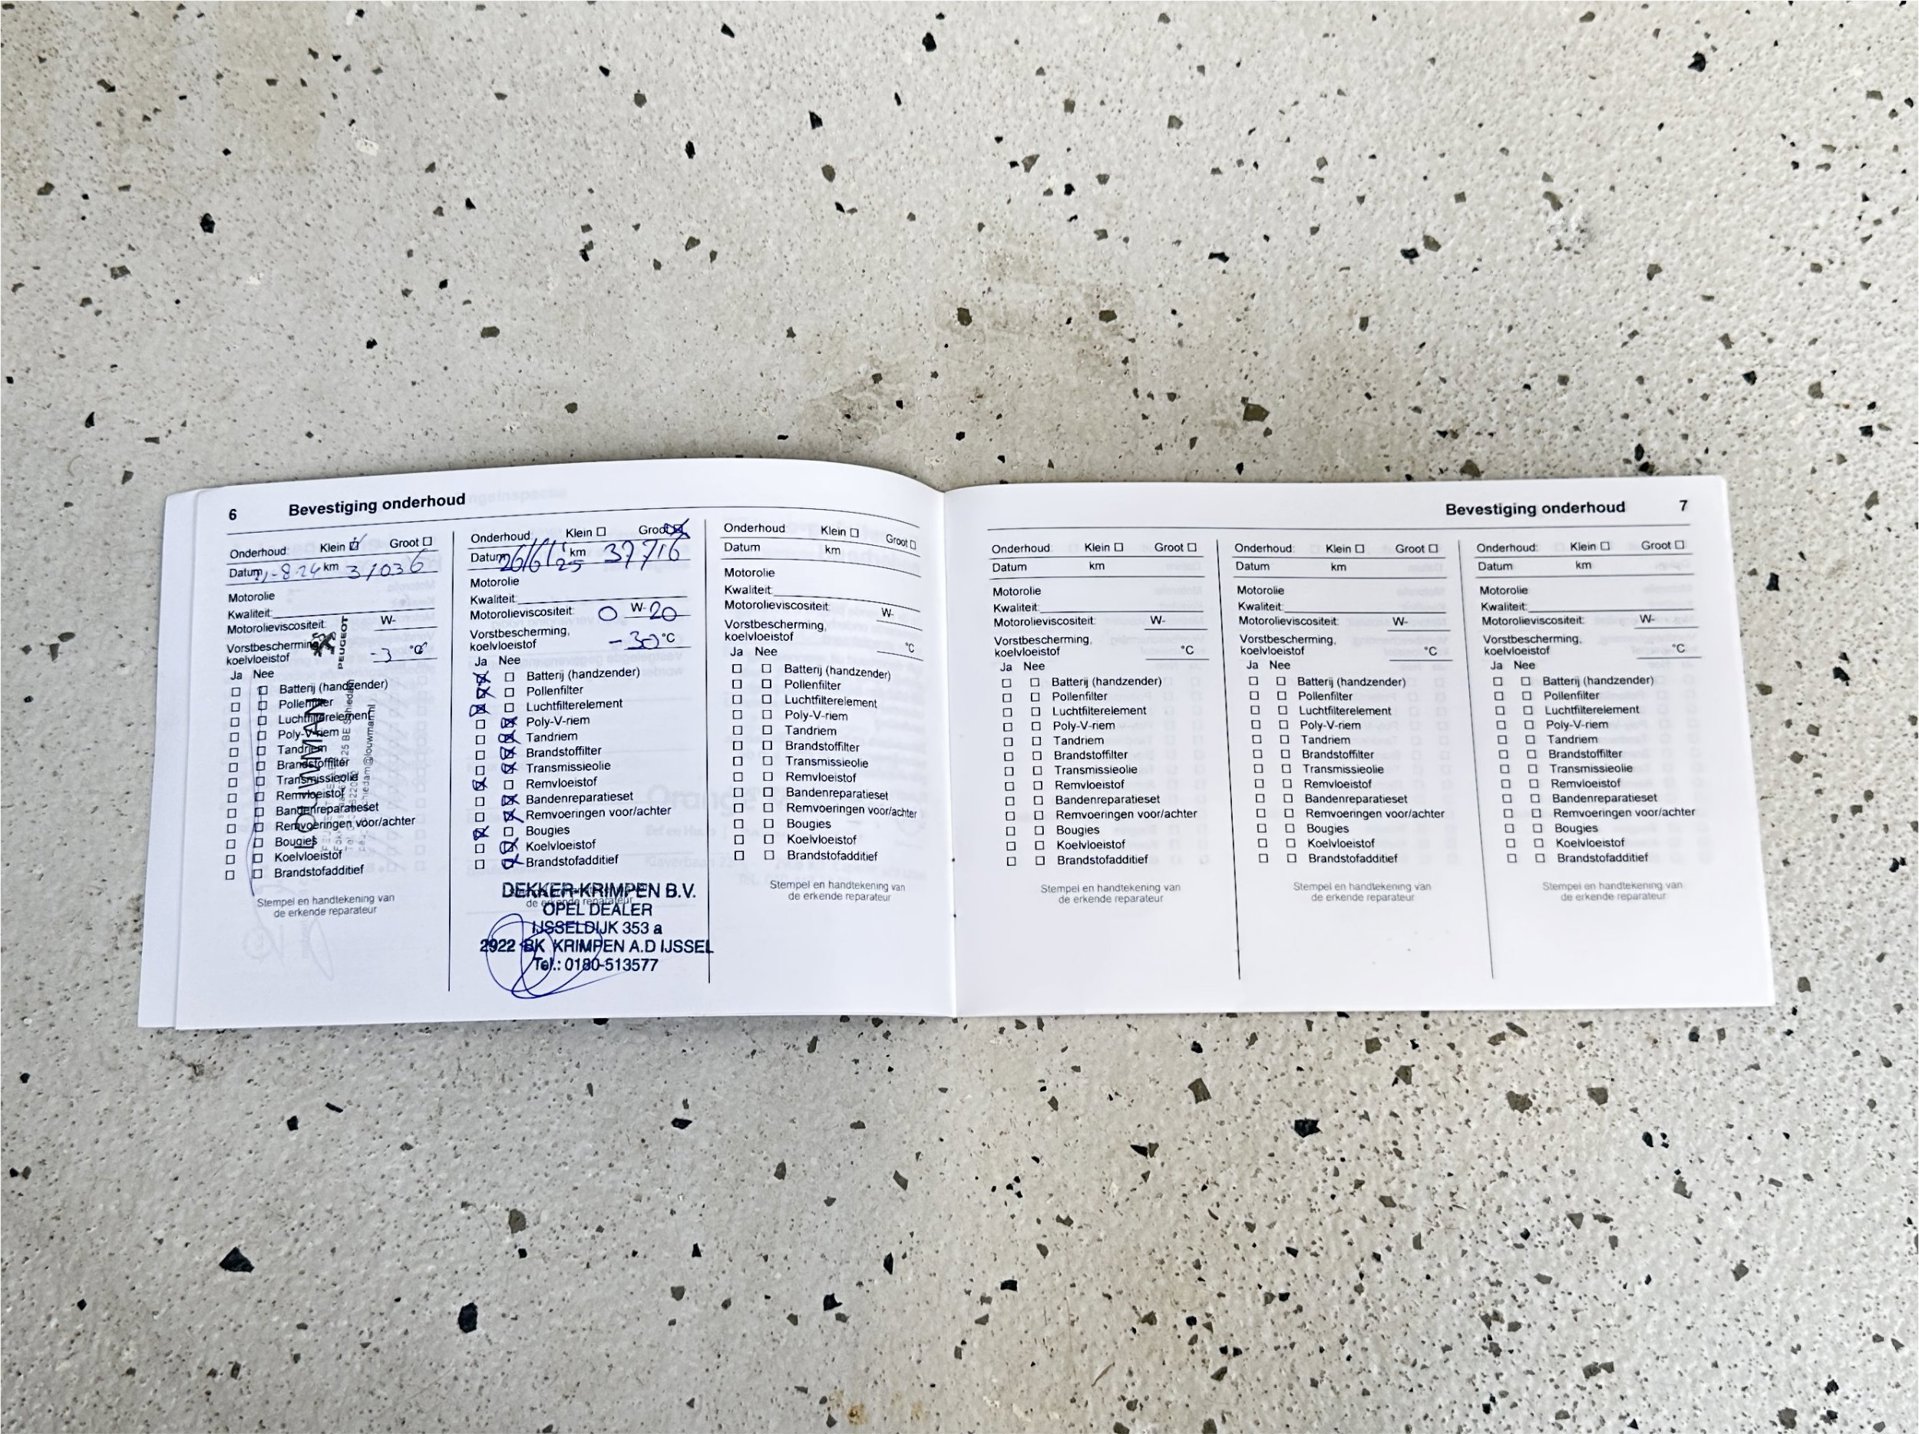 6 Bevestiging onderhoud
Onderhoud: Klein Groot
Datum -8-24 km 31036
Motorolie
Kwaliteit:
Motorolieviscositeit W-
Vorstbescherming,
koelvloeistof -3 °C
Ja Nee
Batterij (handzender)
Pollenfilter
Luchtfilterelement
Poly-V-riem
Tandriem
Brandstoffilter
Transmissieolie
Remvloeistof
Bandenreparatieset
Remvoeringen voor/achter
Bougies
Koelvloeistof
Brandstofadditief
Stempel en handtekening van
de erkende reparateur
PEUGEOT
LOUWMAN
Onderhoud: Klein Groot
Datum 26/6/25 km 37716
Motorolie
Kwaliteit:
Motorolieviscositeit: 0 W- 20
Vorstbescherming,
koelvloeistof -30 °C
Ja Nee
Batterij (handzender)
Pollenfilter
Luchtfilterelement
Poly-V-riem
Tandriem
Brandstoffilter
Transmissieolie
Remvloeistof
Bandenreparatieset
Remvoeringen voor/achter
Bougies
Koelvloeistof
Brandstofadditief
de erkende reparateur
DEKKER-KRIMPEN B.V.
OPEL DEALER
IJSSELDIJK 353 a
2922 BK KRIMPEN A.D IJSSEL
Tel.: 0180-513577
Onderhoud Klein Groot
Datum km
Motorolie
Kwaliteit:
Motorolieviscositeit: W-
Vorstbescherming,
koelvloeistof °C
Ja Nee
Batterij (handzender)
Pollenfilter
Luchtfilterelement
Poly-V-riem
Tandriem
Brandstoffilter
Transmissieolie
Remvloeistof
Bandenreparatieset
Remvoeringen voor/achter
Bougies
Koelvloeistof
Brandstofadditief
Stempel en handtekening van
de erkende reparateur
Bevestiging onderhoud 7
Onderhoud: Klein Groot
Datum km
Motorolie
Kwaliteit:
Motorolieviscositeit: W-
Vorstbescherming,
koelvloeistof °C
Ja Nee
Batterij (handzender)
Pollenfilter
Luchtfilterelement
Poly-V-riem
Tandriem
Brandstoffilter
Transmissieolie
Remvloeistof
Bandenreparatieset
Remvoeringen voor/achter
Bougies
Koelvloeistof
Brandstofadditief
Stempel en handtekening van
de erkende reparateur
Onderhoud: Klein Groot
Datum km
Motorolie
Kwaliteit:
Motorolieviscositeit: W-
Vorstbescherming,
koelvloeistof °C
Ja Nee
Batterij (handzender)
Pollenfilter
Luchtfilterelement
Poly-V-riem
Tandriem
Brandstoffilter
Transmissieolie
Remvloeistof
Bandenreparatieset
Remvoeringen voor/achter
Bougies
Koelvloeistof
Brandstofadditief
Stempel en handtekening van
de erkende reparateur
Onderhoud: Klein Groot
Datum km
Motorolie
Kwaliteit:
Motorolieviscositeit: W-
Vorstbescherming,
koelvloeistof °C
Ja Nee
Batterij (handzender)
Pollenfilter
Luchtfilterelement
Poly-V-riem
Tandriem
Brandstoffilter
Transmissieolie
Remvloeistof
Bandenreparatieset
Remvoeringen voor/achter
Bougies
Koelvloeistof
Brandstofadditief
Stempel en handtekening van
de erkende reparateur